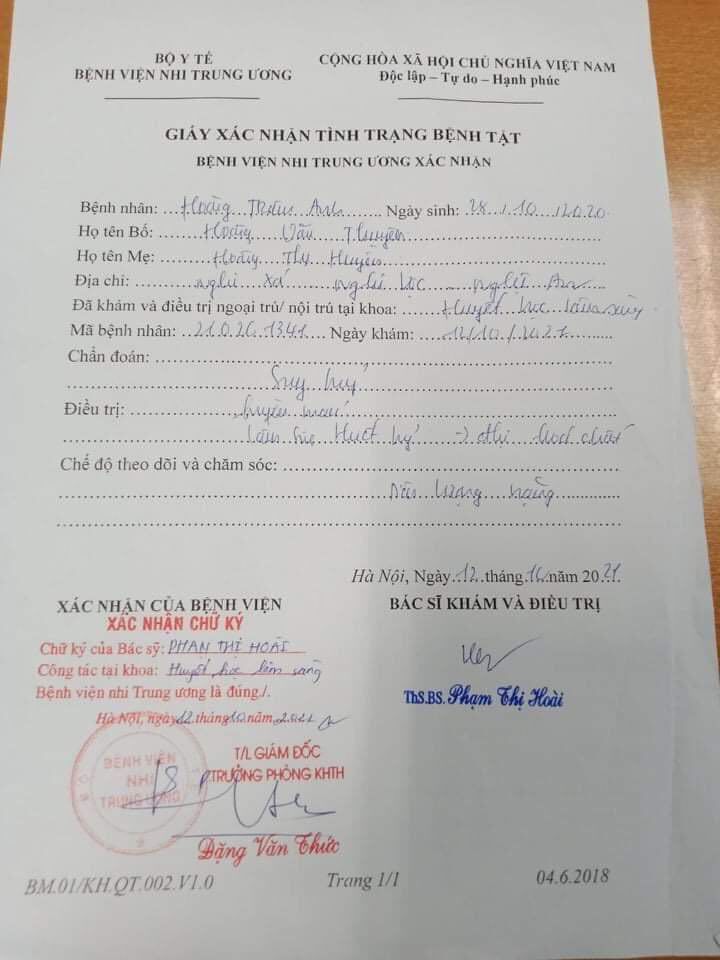 BỘ Y TẾ
BỆNH VIỆN NHI TRUNG ƯƠNG
CỘNG HÒA XÃ HỘI CHỦ NGHĨA VIỆT NAM
Độc lập – Tự do – Hạnh phúc
GIẤY XÁC NHẬN TÌNH TRẠNG BỆNH TẬT
BỆNH VIỆN NHI TRUNG ƯƠNG XÁC NHẬN
Bệnh nhân: Hoàng Anh Ngày sinh: 28/10/2020
Họ tên Bố: Hoàng Văn
Họ tên Mẹ: Hoàng Thị Huyền
Địa chỉ: Nghi Xá Nghi Lộc Nghệ An
Đã khám và điều trị ngoại trú/ nội trú tại khoa: Huyết học lâm sàng
Mã bệnh nhân: 21.026.1341 Ngày khám: 12/10/2021
Chẩn đoán:
Suy tuỷ
Điều trị: truyền máu
Chế độ theo dõi và chăm sóc:
nặng
Hà Nội, Ngày 12 tháng 10 năm 2021
XÁC NHẬN CỦA BỆNH VIỆN
XÁC NHẬN CHỮ KÝ
Chữ ký của Bác sỹ: PHẠM THỊ HOÀI
Công tác tại khoa: Huyết học lâm sàng
Bệnh viện nhi Trung ương là đúng./.
Hà Nội, ngày 12 tháng 10 năm 2021
BỆNH VIỆN
NHI
TRUNG ƯƠNG
T/L GIÁM ĐỐC
P.TRƯỞNG PHÒNG KHTH
Đặng Văn Thức
BÁC SĨ KHÁM VÀ ĐIỀU TRỊ
ThS.BS. Phạm Thị Hoài
BM.01/KH.QT.002.V1.0
Trang 1/1
04.6.2018